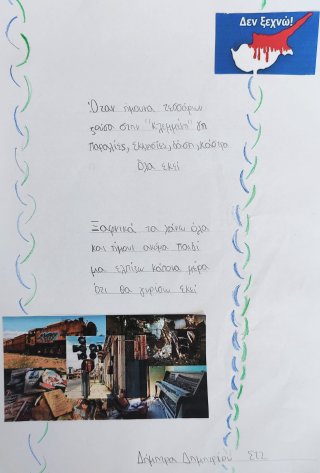 Δεν ξεχνώ!
Όταν ήμουνα τεσσάρων
ζούσα στην "Κλεμμένη" γη
παραλίες, εκκλησίες, δάση, κάστρα
όλα εκεί
Ξαφνικά τα χάνω όλα
και ήμουν ακόμα παιδί
μα ελπίζω κάποια μέρα
ότι θα γυρίσω εκεί
Δήμητρα Δημητρίου Στ2